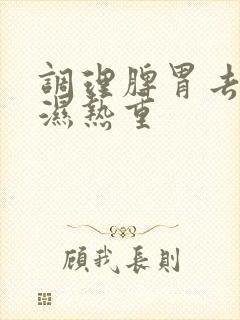 調理脾胃去
濕熱重
顧我長則